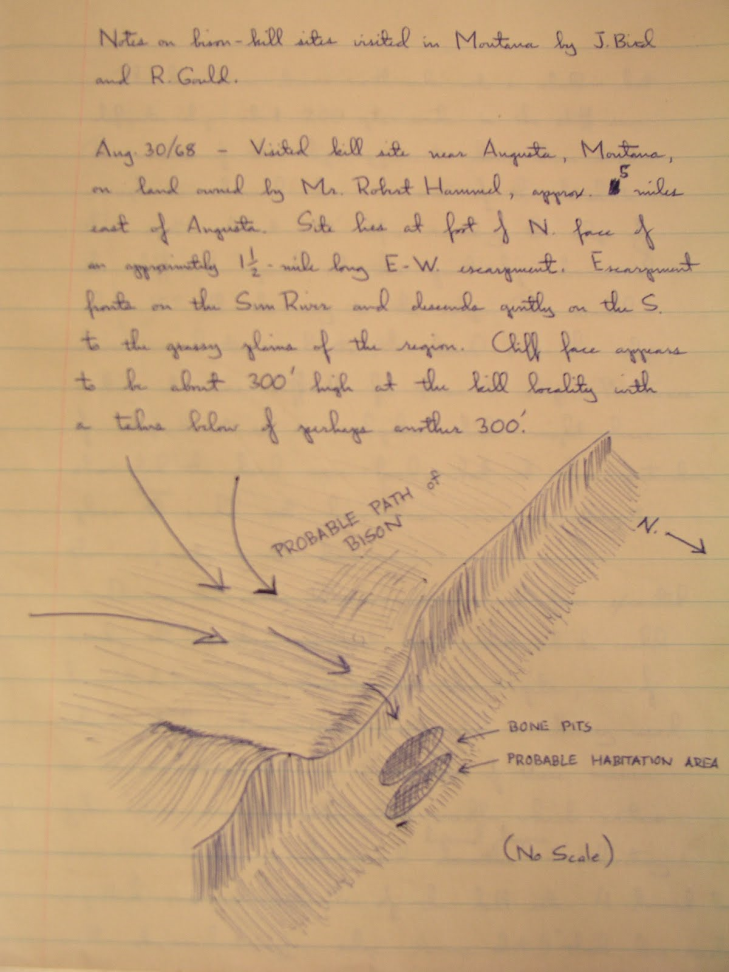 Notes on bison-kill sites visited in Montana by J. Bird
and R. Gould.
Aug. 30/68 - Visited kill site near Augusta, Montana,
on land owned by Mr. Robert Hammel, approx. 5 miles
east of Augusta. Site lies at foot of N. face of
an approximately 1 1/2-mile long E-W. escarpment. Escarpment
fronts on the Sun River and descends gently on the S.
to the grassy plains of the region. Cliff face appears
to be about 300' high at the kill locality with
a talus below of perhaps another 300'.
PROBABLE PATH of
BISON
N.
BONE PITS
PROBABLE HABITATION AREA
(No Scale)